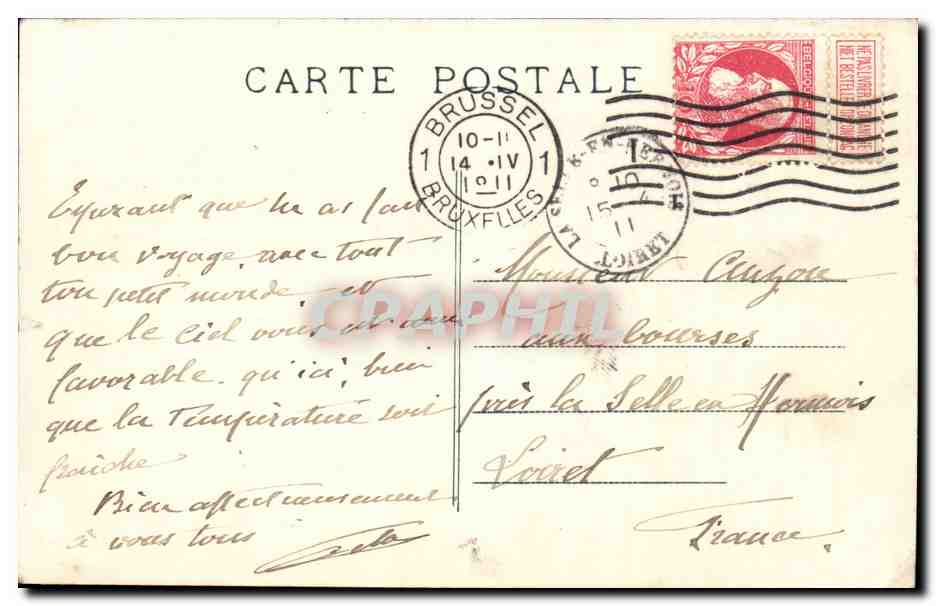 CARTE POSTALE
BRUSSEL
1 10-11 1
14 •IV
1911
BRUXELLES
LA SELLE-EN-HERMOIS
8 10
15 4
11
LOIRET
BELGIQUE
NE PAS LIVRER LE DIMANCHE
NIET BESTELLEN OP ZONDAG
Espérant que tu as fait
bon voyage avec tout
ton petit monde et
que le Ciel vous est
favorable qu'ici, bien
que la Température soit
fraîche
Bien affectueusement
à vous tous
Monsieur
aux bourses
près la Selle en Hermois
Loiret
France.
CPAPHIL